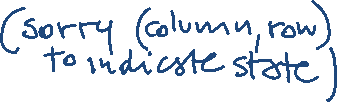 (sorry (column, row)
to indicate state)